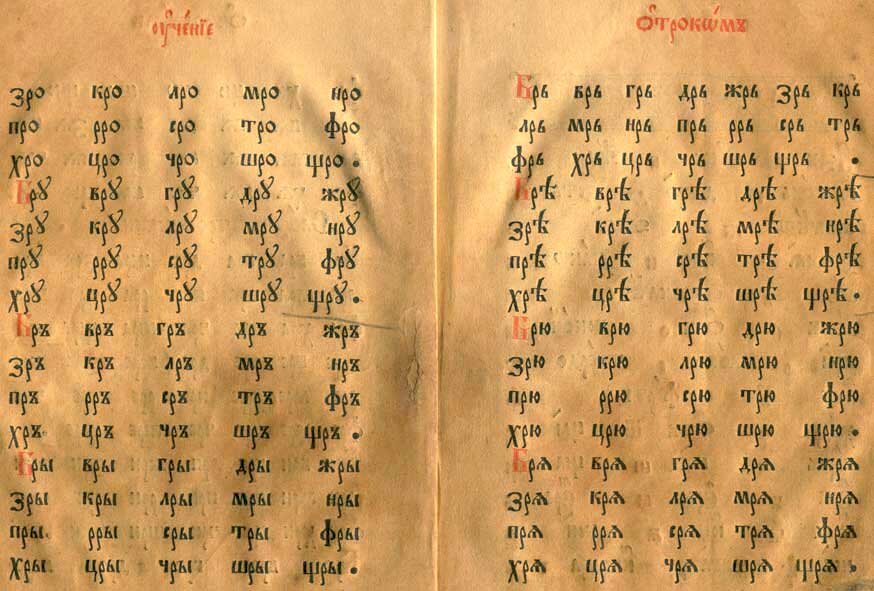 ᲂу҆че́нїе
зро кро лро мро нро
про рро сро тро фро
хро цро чро шро щро.
Брꙋ врꙋ грꙋ дрꙋ жрꙋ
зрꙋ крꙋ лрꙋ мрꙋ нрꙋ
прꙋ ррꙋ срꙋ трꙋ фрꙋ
хрꙋ црꙋ чрꙋ шрꙋ щрꙋ.
Бръ връ гръ дръ жръ
зръ кръ лръ мръ нръ
пръ рръ сръ тръ фръ
хръ цръ чръ шръ щръ.
Бры вры гры дры жры
зры кры лры мры нры
пры рры сры тры фры
хры цры чры шры щры.
Ѻ҆трокѡ́мъ
Брь врь грь дрь жрь зрь крь
лрь мрь нрь прь ррь срь трь
фрь хрь црь чрь шрь щрь.
Брѣ врѣ грѣ дрѣ жрѣ
зрѣ крѣ лрѣ мрѣ нрѣ
прѣ ррѣ срѣ трѣ фрѣ
хрѣ црѣ чрѣ шрѣ щрѣ.
Брю врю грю дрю жрю
зрю крю лрю мрю нрю
прю ррю срю трю фрю
хрю црю чрю шрю щрю.
Брѧ врѧ грѧ дрѧ жрѧ
зрѧ крѧ лрѧ мрѧ нрѧ
прѧ ррѧ срѧ трѧ фрѧ
хрѧ црѧ чрѧ шрѧ щрѧ.